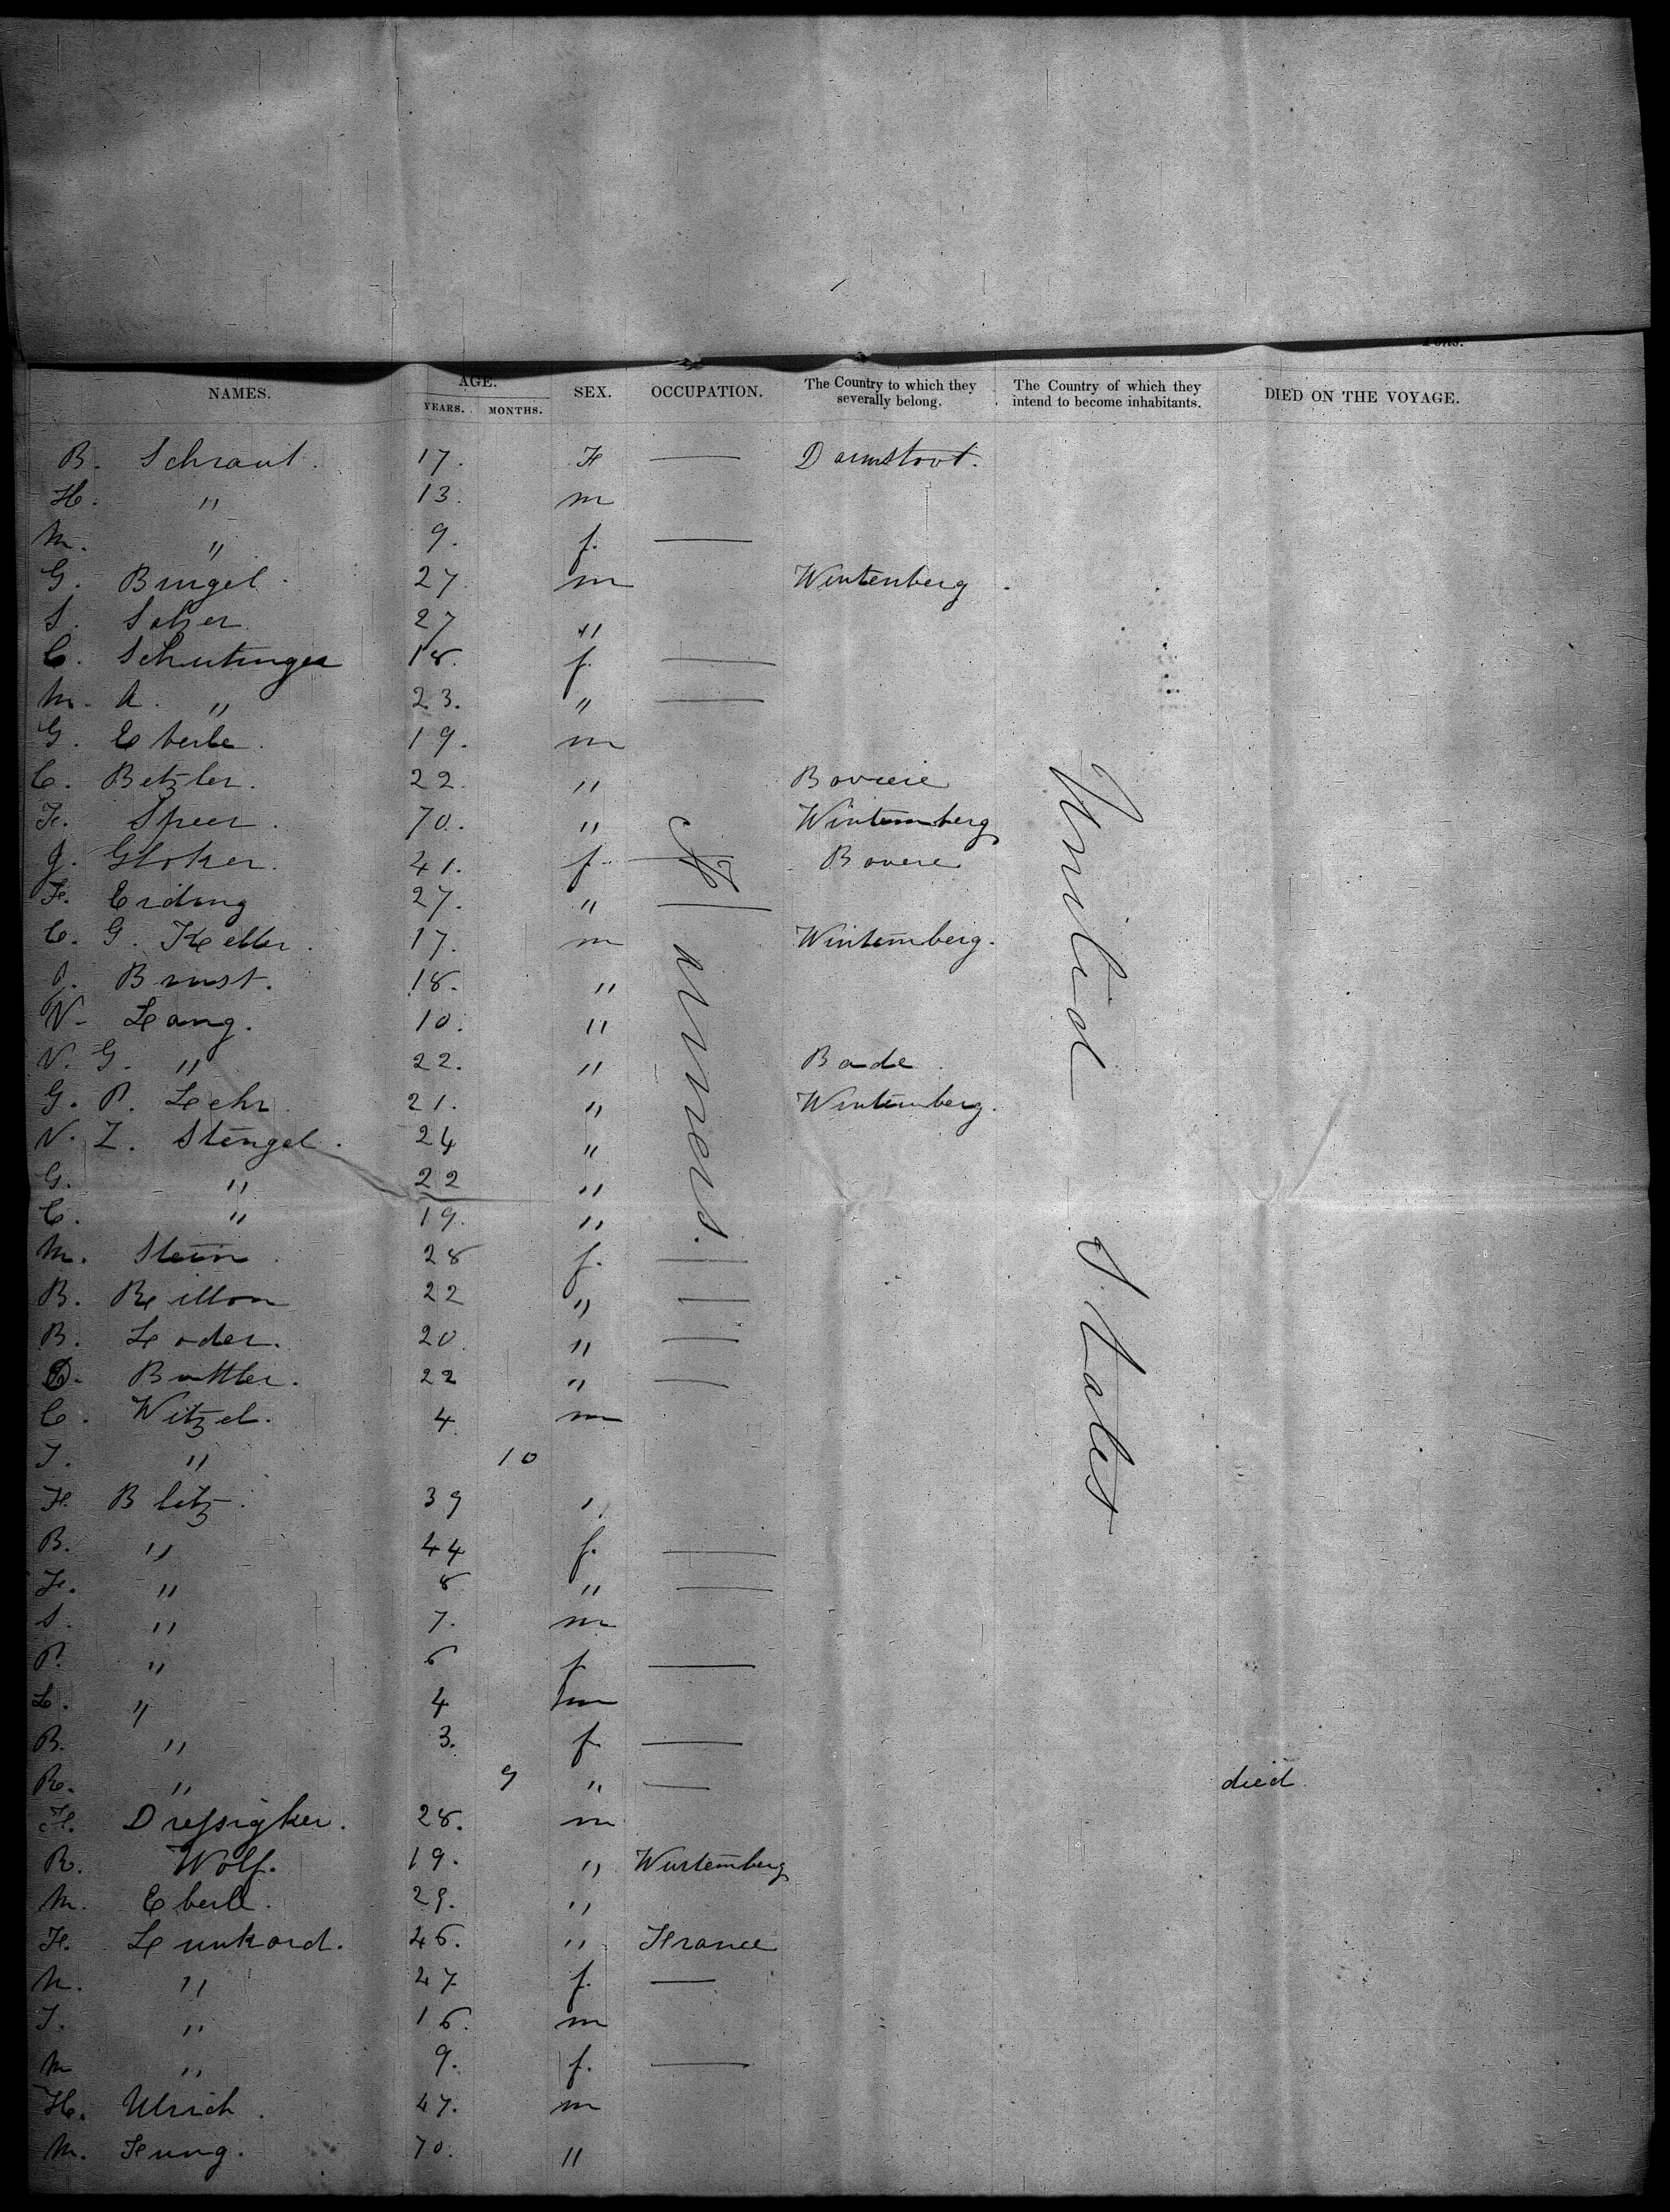 Tons.
NAMES. AGE. YEARS. MONTHS. SEX. OCCUPATION. The Country to which they severally belong. The Country of which they intend to become inhabitants. DIED ON THE VOYAGE.
B. Schraut. 17. F — Darmstavt.
H. " 13. m
M. " 9. f. —
G. Bungel. 27. m Wintenberg.
S. Salzer. 27 "
C. Schutinger 18. f. —
M. A. " 23. " —
G. Eberle. 19. m
C. Betzler. 22. " Baviere
F. Speer. 70. " Wintemberg
J. Gloker. 41. f. — Bavere
F. Erding 27. " —
C. G. Keller. 17. m Wintemberg.
J. Brust. 18. "
N. Lang. 10. "
N. G. " 22. " Bade.
G. P. Lehr. 21. " Wintemberg.
N. Z. Stengel. 24 "
G. " 22 "
C. " 19. "
M. Stein. 28 f. —
B. Reitton 22 " —
B. Loder. 20. " —
B. Buttler. 22 " —
C. Witzel. 4. m
J. " 10
F. Blitz. 39 "
B. " 44 f. —
F. " 8 " —
S. " 7. m
P. " 6 f —
L. " 4 m
B. " 3. f —
R. " 9 " — died.
F. Dressigker. 28. m
R. Wolf. 19. " Wurtemberg
M. Eberle. 29. "
F. Lunkard. 46. " France
M. " 47. f. —
J. " 16. m
M " 9. f. —
H. Ulrich. 47. m
M. Jung. 70. "
Farmers.
United States